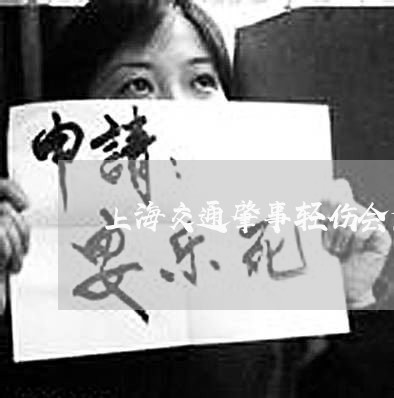 申請：
上海交通肇事轻伤会
安乐死